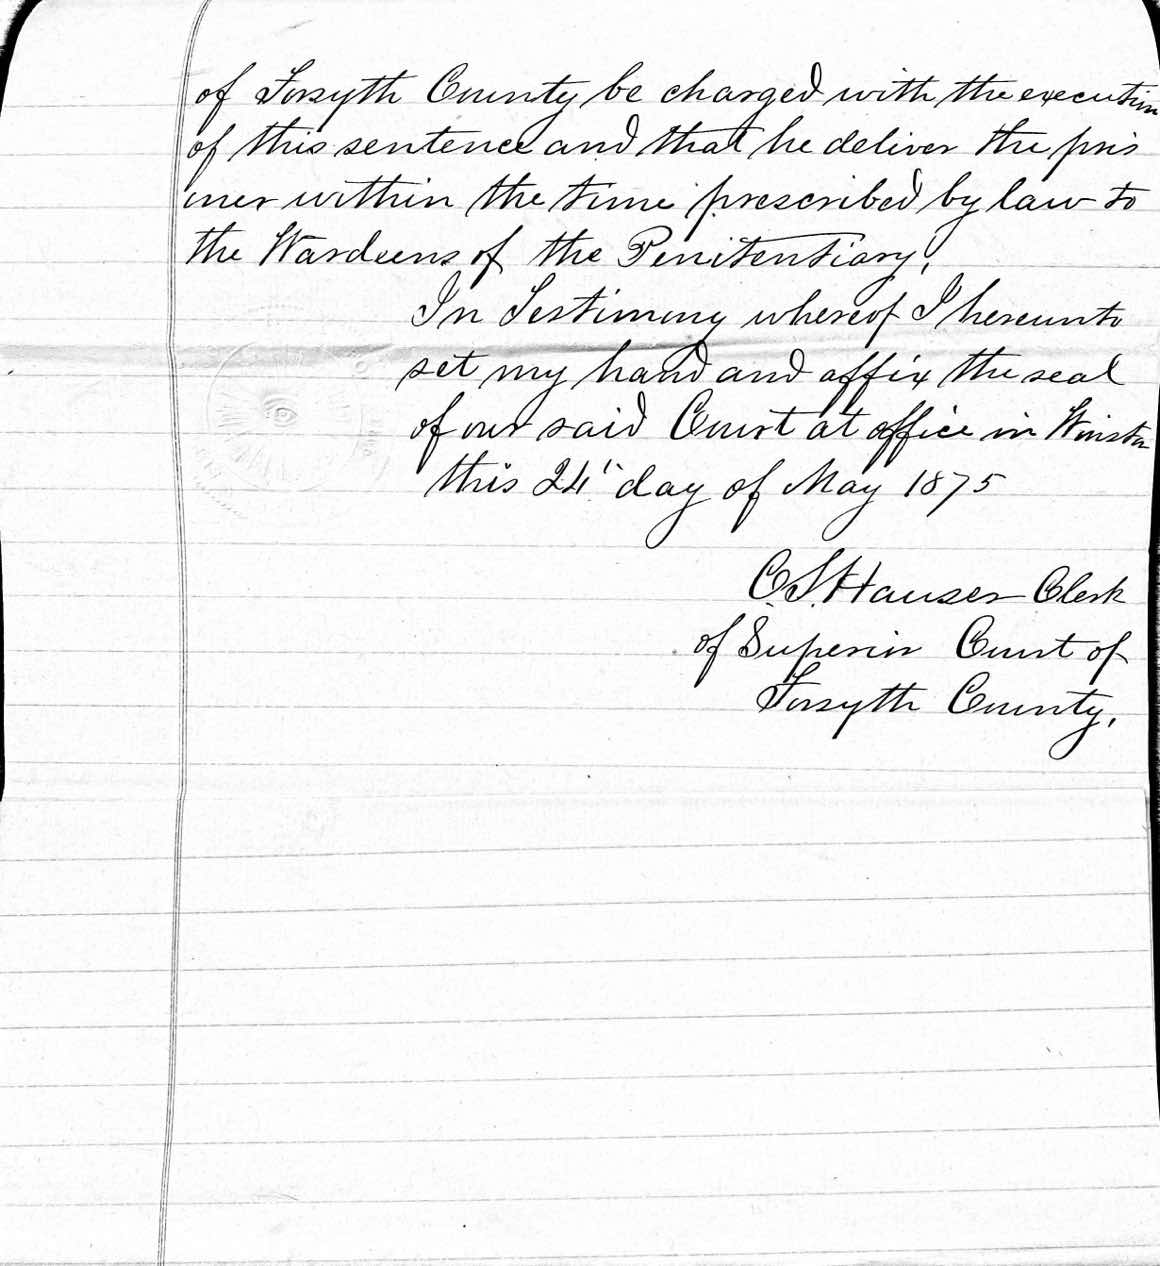 of Forsyth County be charged with the execution
of this sentence and that he deliver the pris
oner within the time prescribed by law to
the Wardeens of the Penitentiary.
In Testimony whereof I hereunto
set my hand and affix the seal
of our said Court at office in Winston
this 24" day of May 1875
C. S. Hauser Clerk
of Superior Court of
Forsyth County,